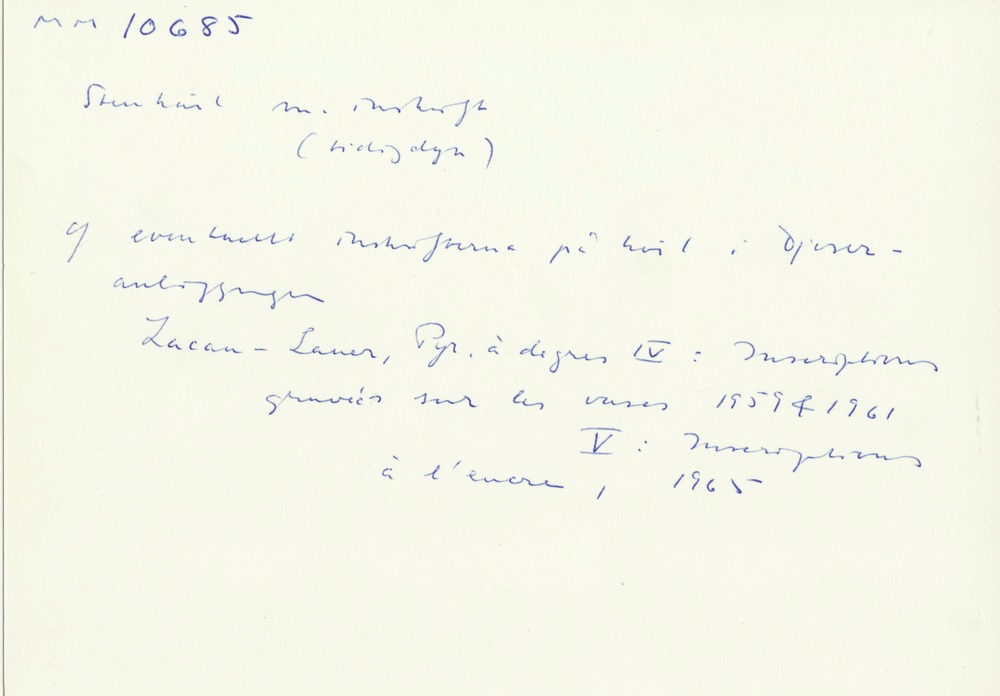 MM 10685
Stenkärl m. inskrift
(tidigdyn)
cf eventuellt inskrifterna på kärl i Djoser-
anläggningen
Lacau - Lauer, Pyr. à degrés IV : Inscriptions
gravées sur les vases 1959 & 1961
V : Inscriptions
à l'encre, 1965